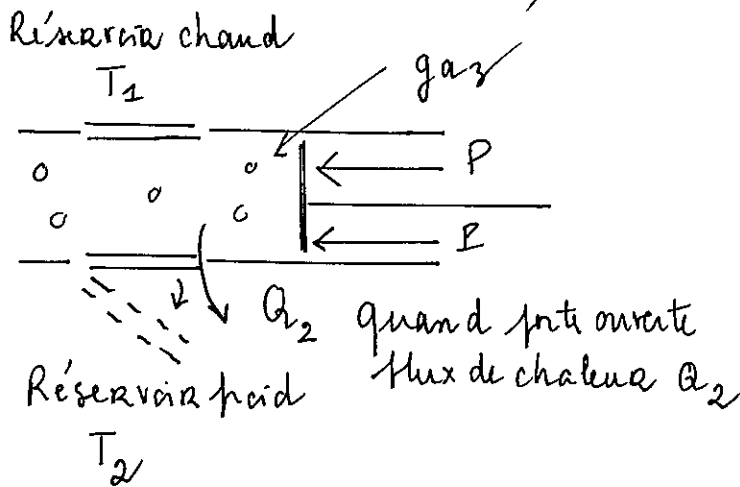 Réservoir chaud
T1
gaz
P
P
Q2 quand porte ouverte
flux de chaleur Q2
Réservoir froid
T2